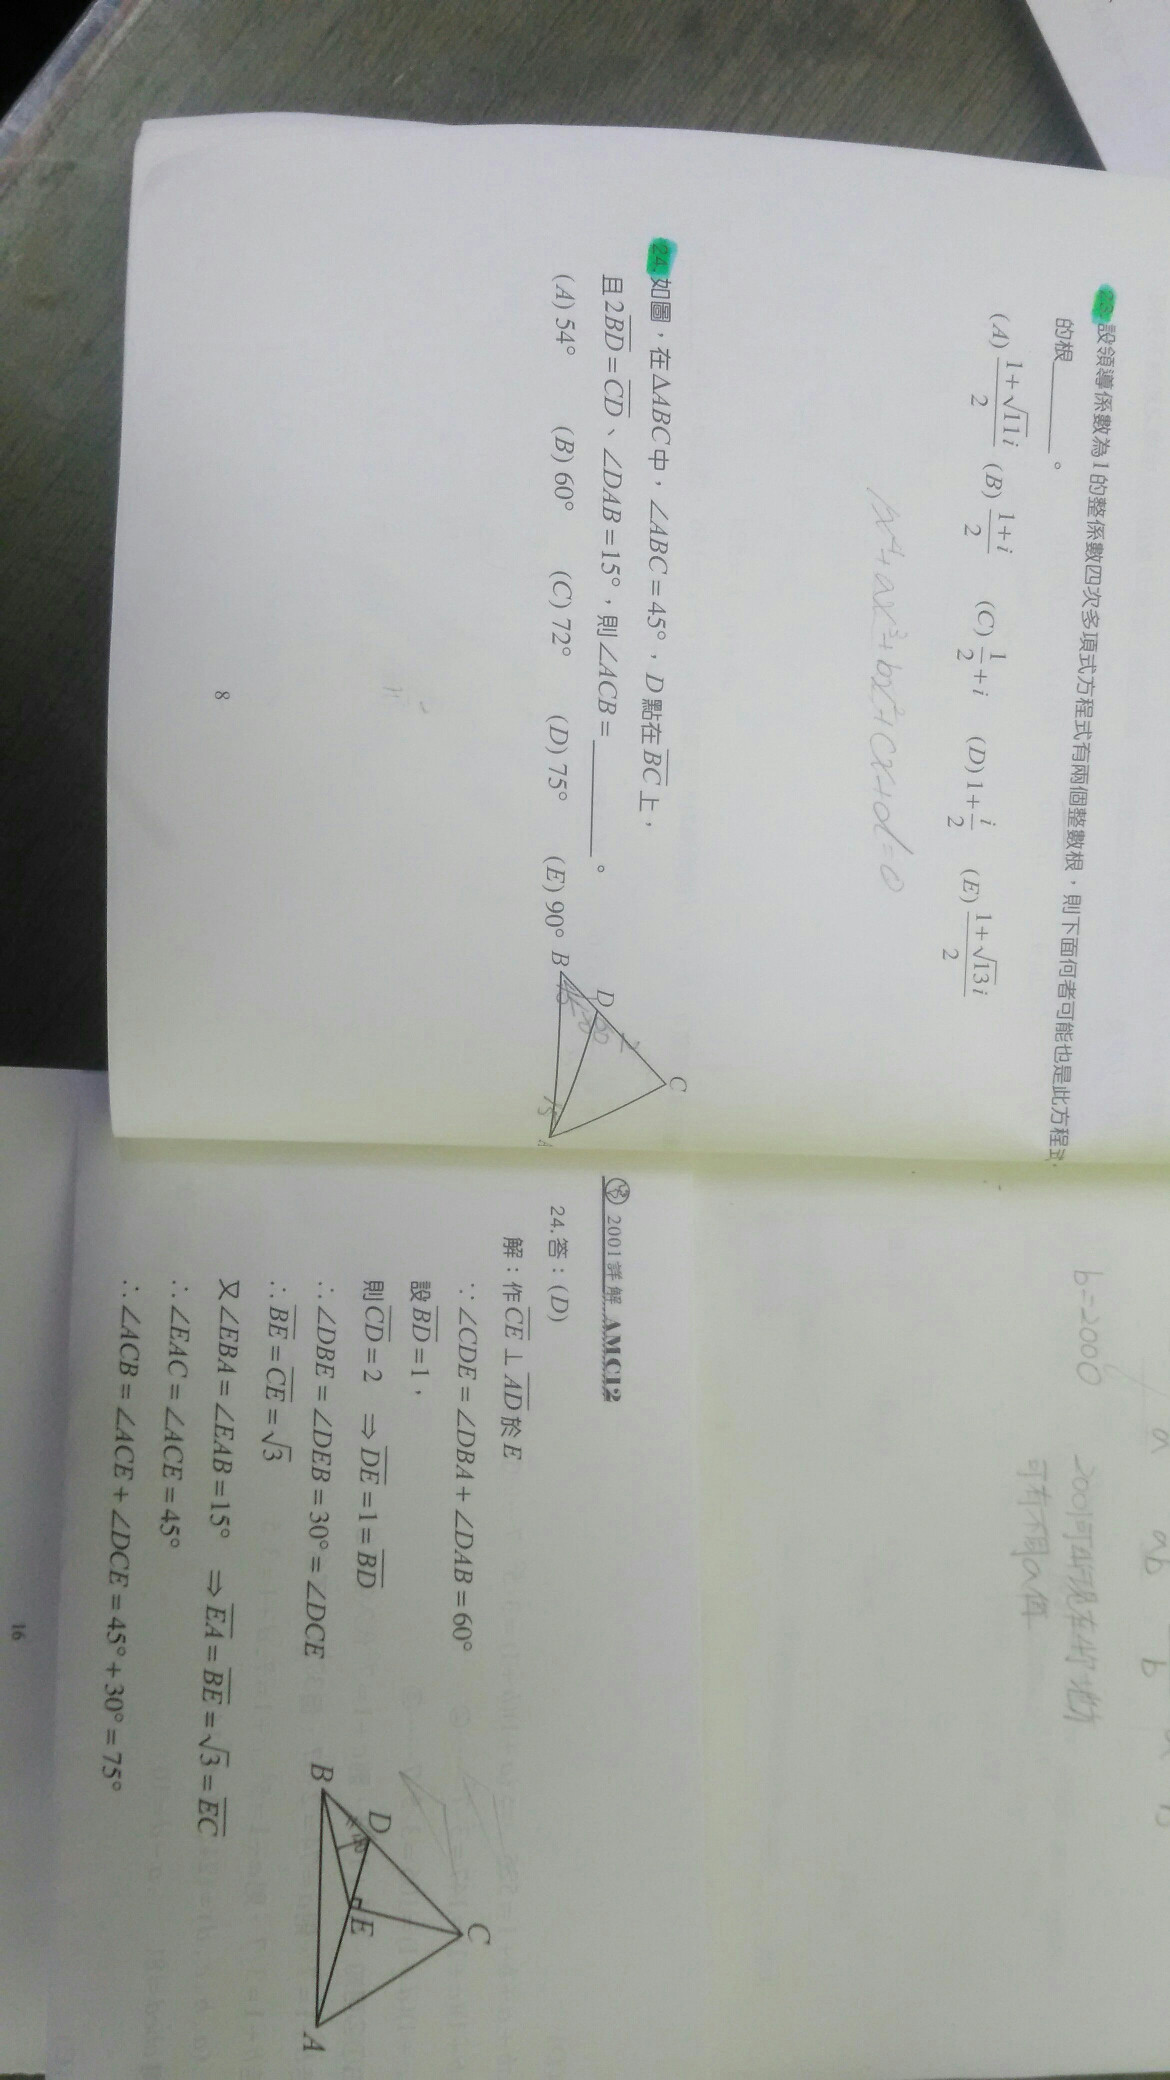 23.設領導係數為1的整係數四次多項式方程式有兩個整數根,則下面何者可能也是此方程式
的根______。
(A) (1+√11i)/2 (B) (1+i)/2 (C) 1/2+i (D) 1+i/2 (E) (1+√13i)/2
1x⁴+ax³+bx²+cx+d=0
24.如圖,在ΔABC中,∠ABC=45°,D點在BC上,
且2BD=CD、∠DAB=15°,則∠ACB=______。
(A) 54° (B) 60° (C) 72° (D) 75° (E) 90°
B D C
45 120 60 2 15
8
b=-2000
a ab b
2001
2001詳解 AMC12
24.答:(D)
解:作CE⊥AD於E
∵∠CDE=∠DBA+∠DAB=60°
設BD=1,
則CD=2 ⇒DE=1=BD
∴∠DBE=∠DEB=30°=∠DCE
∴BE=CE=√3
又∠EBA=∠EAB=15° ⇒EA=BE=√3=EC
∴∠EAC=∠ACE=45°
∴∠ACB=∠ACE+∠DCE=45°+30°=75°
B D E C A
16